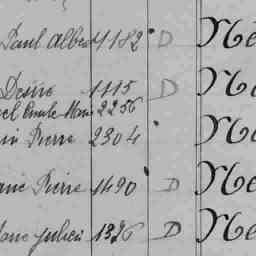 Paul Albert 1182 D Ne
Désiré 1115 D Ne
el Emile Marie 2256
Pierre 2304 Ne
Pierre 1490 D Ne
Julien 1326 D Ne